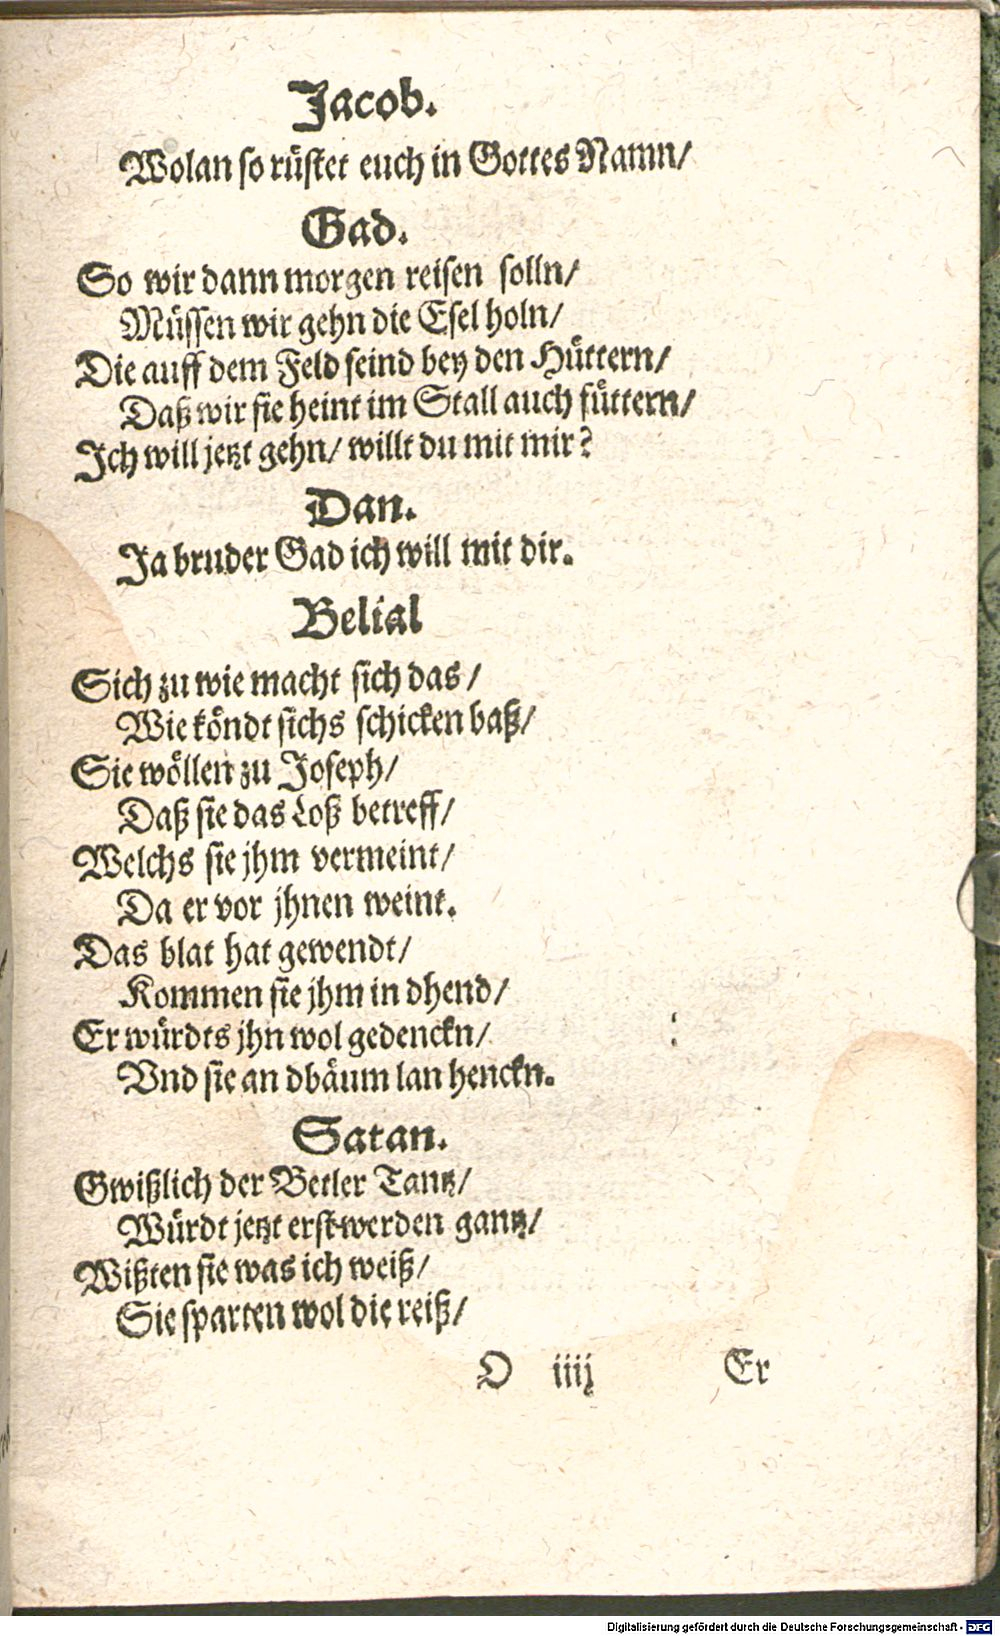 Jacob.
Wolan so rüstet euch in Gottes Namn/
Gad.
So wir dann morgen reisen solln/
Müssen wir gehn die Esel holn/
Die auff dem Feld seind bey den Hüttern/
Daß wir sie heint im Stall auch füttern/
Ich will jetzt gehn/ willt du mit mir?
Dan.
Ja bruder Gad ich will mit dir.
Belial
Sich zu wie macht sich das/
Wie köndt sichs schicken baß/
Sie wöllen zu Joseph/
Daß sie das Loß betreff/
Welchs sie jhm vermeint/
Da er vor jhnen weint.
Das blat hat gewendt/
Kommen sie jhm in dhend/
Er würdts jhn wol gedenckn/
Vnd sie an dbäum lan henckn.
Satan.
Gwißlich der Betler Tantz/
Würdt jetzt erst werden gantz/
Wißten sie was ich weiß/
Sie sparten wol die reiß/
O iiij Er
Digitalisierung gefördert durch die Deutsche Forschungsgemeinschaft - DFG